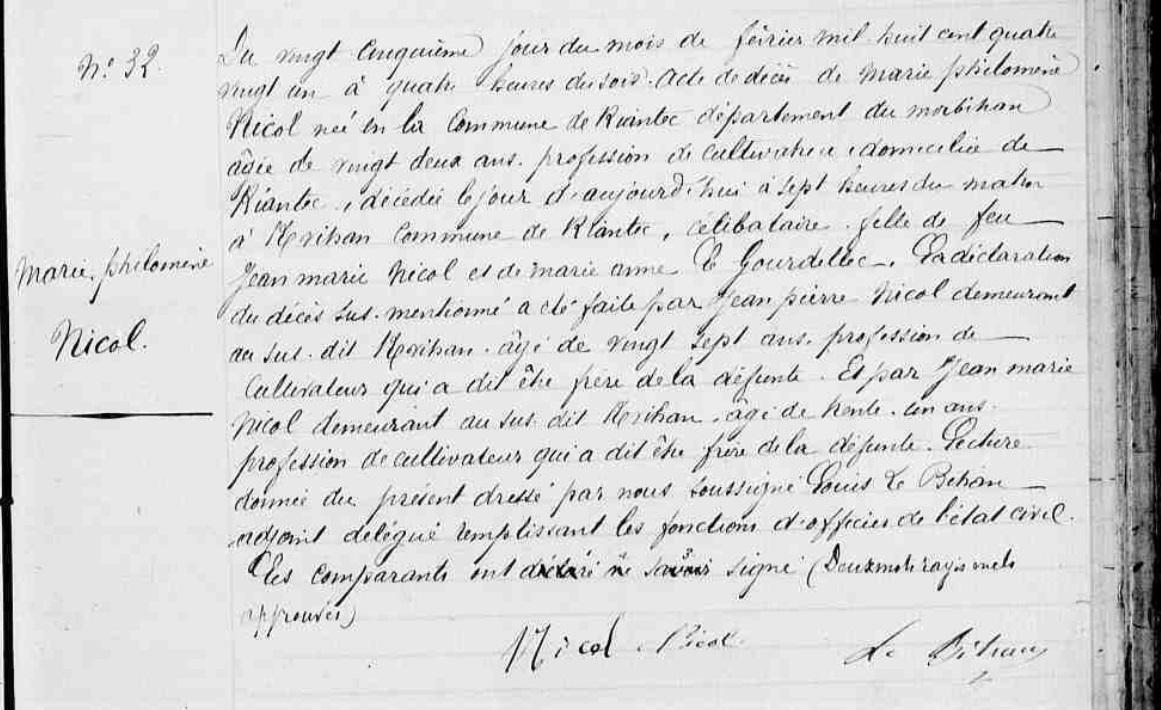 N.º 32.
Marie philomène
Nicol.
Du vingt cinquième jour du mois de février mil huit cent quatre
vingt un à quatre heures du soir. Acte de décès de Marie philomène
Nicol neé en la Commune de Riantec département du morbihan
âgée de vingt deux ans. profession de cultivatrice, domiciliée de
Riantec, décédée le jour d'aujourd'hui à sept heures du matin
à Kerihan Commune de Riantec, célibataire. fille de feu
Jean marie Nicol et de marie anne Le Gourdellec. La déclaration
du décès sus-mentionné a été faite par Jean pierre Nicol demeurant
au sus-dit Kerihan. âgé de vingt sept ans. profession de
Cultivateur qui a dit être frère de la défunte. Et par Jean marie
Nicol demeurant au sus-dit Kerihan. âgé de trente-un ans.
profession de cultivateur qui a dit être frère de la défunte. Lecture
donnée du présent dressé par nous soussigné Louis Le Bihan
adjoint délégué remplissant les fonctions d'officier de l'état civil.
Les comparants ont déclaré ne savoir signé (Deux mots rayés nuls
approuvés)
Nicol Nicol Le Bihan